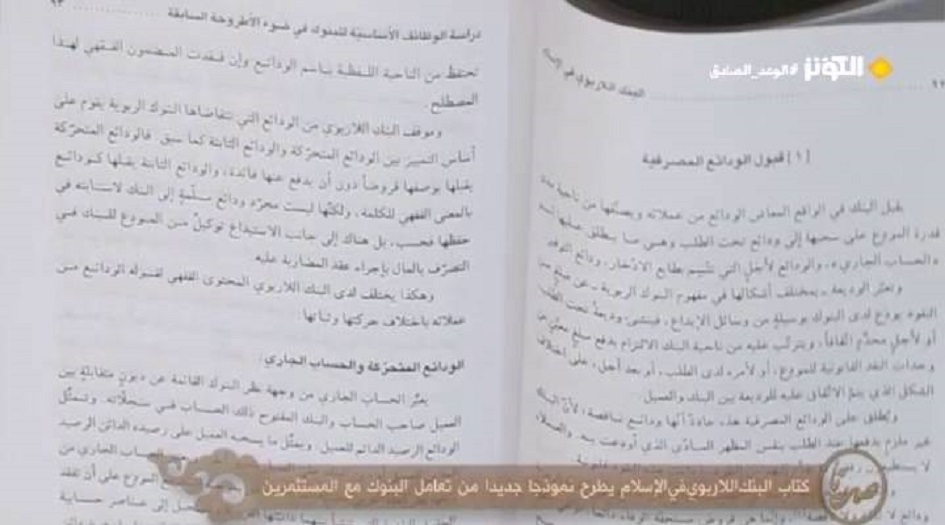 الكوثر #الوعد_الصادق
البنك اللاربوي في الإسلام
[١] قبول الودائع المصرفية
يقبل البنك في الواقع المعاش الودائع من عملائه ويصنّفها من ناحية مدى
قدرة المودع على سحبها إلى ودائع تحت الطلب وهي ما يطلق عليها اسم
«الحساب الجاري»، والودائع لأجل التي تتّسم بطابع الادّخار، وودائع التوفير.
وتعتبر الوديعة ـ بمختلف أشكالها في مفهوم البنوك الربوية ـ عن مبلغ من
النقود يودع لدى البنوك بوسيلةٍ من وسائل الإيداع، فينشئ وديعةً تحت الطلب
أو لأجلٍ محدّدٍ اتّفاقاً، ويترتّب عليه من ناحية البنك الالتزام بدفع مبلغٍ معيّنٍ من
وحدات النقد القانونية للمودع، أو لأمره لدى الطلب، أو بعد أجل، على اختلاف
الشكل الذي يتمّ الاتّفاق عليه للوديعة بين البنك والعميل.
ويُطلق على الودائع المصرفية هذه عادةً أنّها ودائع ناقصة، لأنّ البنك
غير ملزم بدفعها عند الطلب بنفس المظهر المادّي الذي أودعت به، والعملاء
دراسة الوظائف الأساسيّة للبنوك في ضوء الأطروحة السابقة ٩٣
تحتفظ من الناحية اللفظيّة باسم الودائع وإن فقدت المضمون الفقهي لهذا
المصطلح.
وموقف البنك اللاربوي من الودائع التي تتقاضاها البنوك الربوية يقوم على
أساس التمييز بين الودائع المتحرّكة والودائع الثابتة كما سبق. فالودائع المتحرّكة
يقبلها بوصفها قروضاً دون أن يدفع عنها فائدة، والودائع الثابتة يقبلها كودائع
بالمعنى الفقهي للكلمة، ولكنّها ليست مجرّد ودائع مسلّمةٍ إلى البنك لاستنابته في
حفظها فحسب، بل هناك إلى جانب الاستيداع توكيلٌ من المودع للبنك في
التصرّف بالمال بإجراء عقد المضاربة عليه.
وهكذا يختلف لدى البنك اللاربوي المحتوى الفقهي لقبوله الودائع من
عملائه باختلاف حركتها وثباتها.
الودائع المتحرّكة والحساب الجاري:
يعبّر الحساب الجاري من وجهة نظر البنوك القائمة عن ديونٍ متقابلةٍ بين
العميل صاحب الحساب والبنك المفتوح ذلك الحساب في سجلّاته. وتمثّل
الودائع الرصيد الدائم للعميل. ويمثّل ما يسحبه العميل على رصيده الدائن الرصيد
كتاب البنك اللاربوي في الإسلام يطرح نموذجا جديدا من تعامل البنوك مع المستثمرين